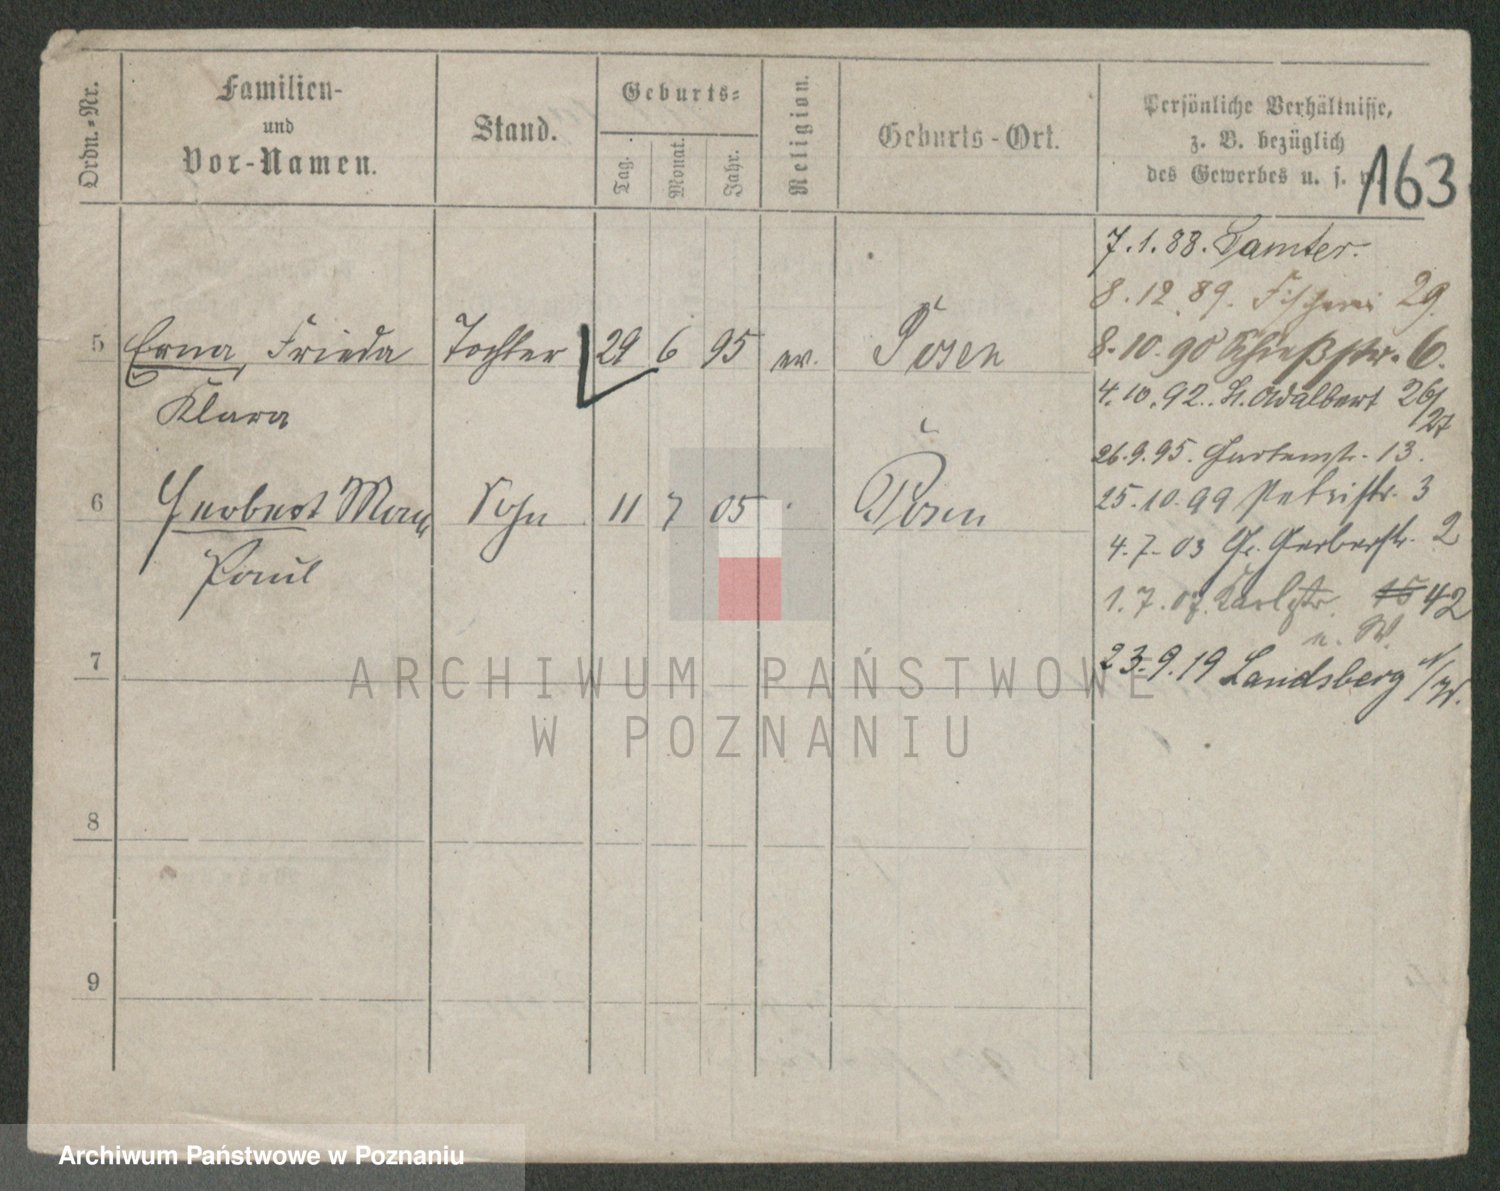 Ordn.-Nr.
Familien-
und
Vor-Namen.
Stand.
Geburts-
Tag.
Monat.
Jahr.
Religion.
Geburts-Ort.
Persönliche Verhältnisse,
z. B. bezüglich
des Gewerbes u. s. w.
163
7.1.88. Samter.
8.12.89. Fischerei 29.
5 Erna, Frieda Tochter 29 6 95 ev. Posen
8.10.90 Schießstr. 6.
Klara
4.10.92. St. Adalbert 26/27
26.9.95. Gartenstr. 13.
6 Herbert Max Sohn 11 7 05 Posen
25.10.99 Petristr. 3
Paul
4.7.03 Gr. Gerberstr. 2
1.7.07. Karlstr. 15 42
7
23.9.19 Landsberg a/W.
8
9
ARCHIWUM PAŃSTWOWE
W POZNANIU
Archiwum Państwowe w Poznaniu